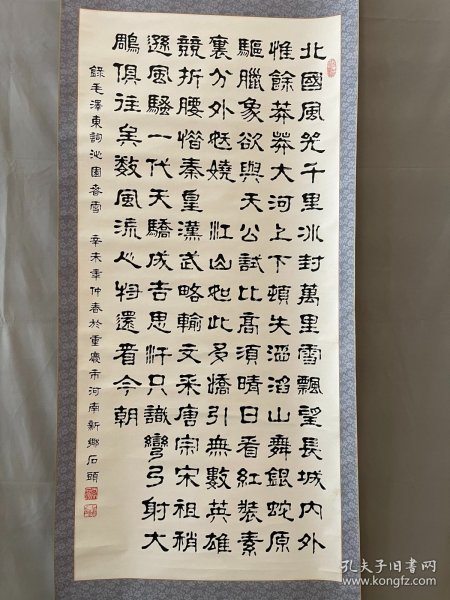 北國風光千里冰封萬里雪飄望長城內外
惟餘莽莽大河上下頓失滔滔山舞銀蛇原
驅臘象欲與天公試比高須晴日看紅裝素
裹分外妖嬈 江山如此多嬌引無數英雄
競折腰惜秦皇漢武略輸文采唐宗宋祖稍
遜風騷一代天驕成吉思汗只識彎弓射大
鵰俱往矣數風流人物還看今朝
錄毛澤東詞沁園春雪 辛未年仲春於重慶市河南新鄉石頭
孔夫子旧书网
www.kongfz.com